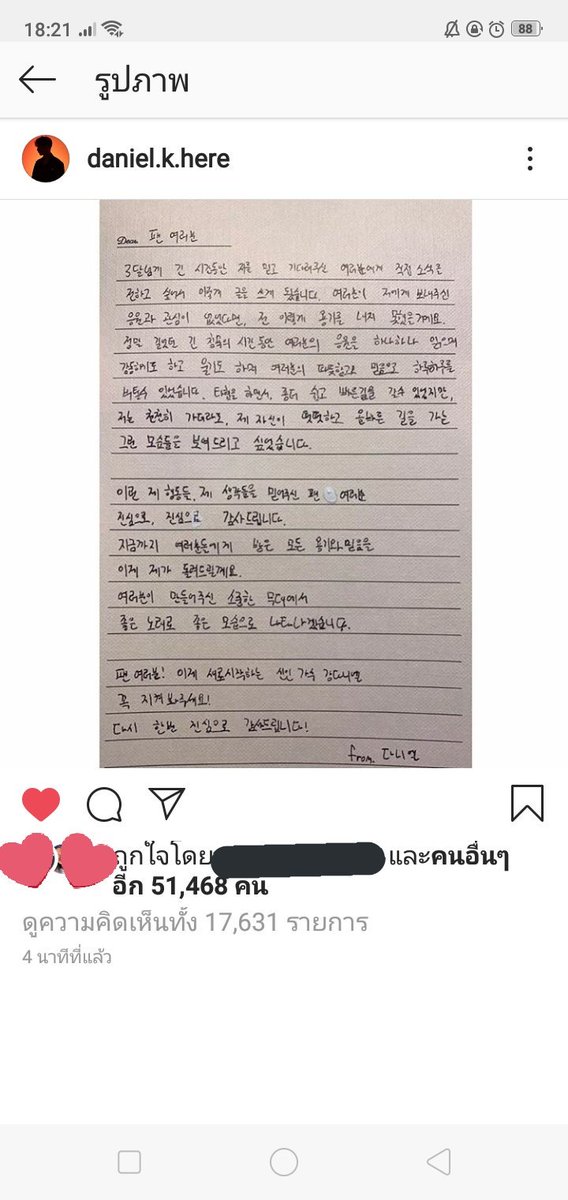 18:21
88
รูปภาพ
daniel.k.here
Dear. 팬 여러분
3달넘게 긴 시간동안 저를 믿고 기다려주신 여러분에게 직접 소식을
전하고 싶어서 이렇게 글을 쓰게 됐습니다. 여러분이 저에게 보내주신
응원과 관심이 없었다면, 전 이렇게 용기를 내지 못했을거예요.
정말 길었던 긴 침묵의 시간 동안 여러분의 응원을 하나하나 읽으며
감동하기도 하고 울기도 하며 여러분의 따뜻함과 믿음으로 하루하루를
버틸수 있었습니다. 타협을 하면서, 좀더 쉽고 빠른길을 갈수 있었지만,
저는 천천히 가더라도, 제 자신이 떳떳하고 올바른 길을 가는
그런 모습들을 보여드리고 싶었습니다.
이런 제 행동들, 제 생각들을 믿어주신 팬 여러분
진심으로, 진심으로 감사드립니다.
지금까지 여러분들에게 받은 모든 용기와 믿음을
이제 제가 돌려드릴게요.
여러분이 만들어주신 소중한 무대에서
좋은 노래로 좋은 모습으로 나타나겠습니다.
팬 여러분! 이제 새로시작하는 신인 가수 강다니엘
꼭 지켜봐주세요!
다시 한번 진심으로 감사드립니다!
from. 다니엘
ถูกใจโดย และคนอื่นๆ
อีก 51,468 คน
ดูความคิดเห็นทั้ง 17,631 รายการ
4 นาทีที่แล้ว